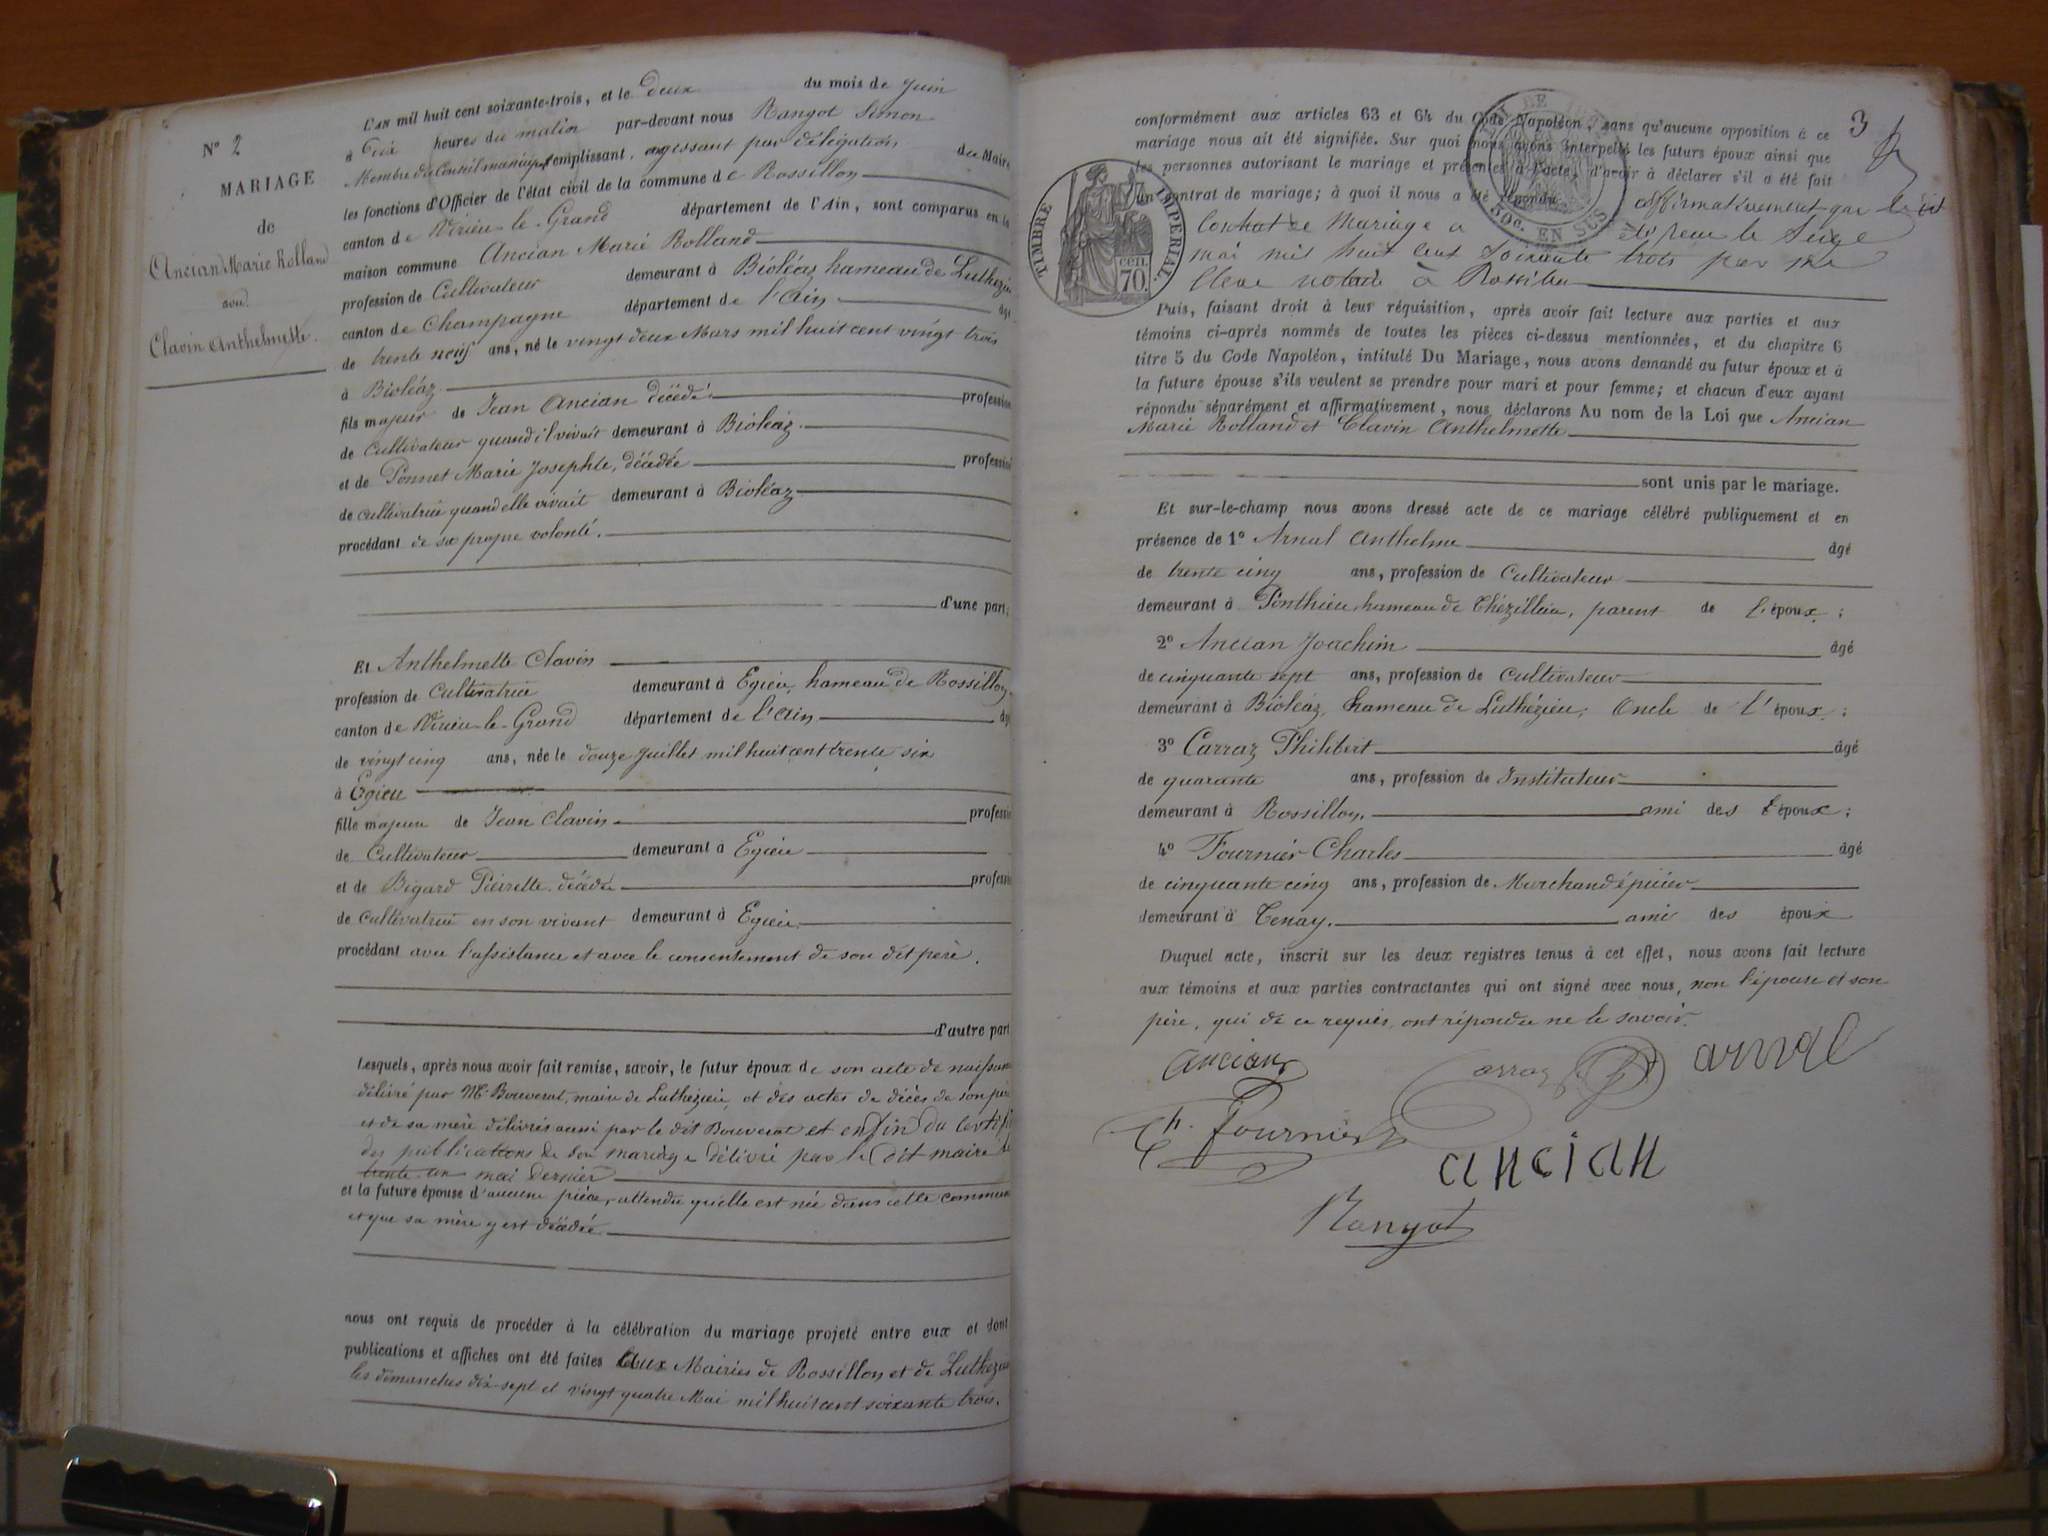 N° 2
MARIAGE
de
Ancian Marie Rolland
avec
Clavin Anthelmette.
L'AN mil huit cent soixante-trois, et le deux du mois de Juin
à Dix heures du matin par-devant nous Rangot Simon
Membre du Conseil municipal remplissant, agissant par délégation du Maire
les fonctions d'Officier de l'état civil de la commune de Rossillon
canton de Virieu-le-Grand département de l'Ain, sont comparus en la
maison commune Ancian Marie Rolland
profession de Cultivateur demeurant à Bioléaz, hameau de Luthézieu
canton de Champagne département de l'Ain âgé
de trente neuf ans, né le vingt deux Mars mil huit cent vingt trois
à Bioléaz
fils majeur de Jean Ancian décédé profession
de Cultivateur quand il vivait demeurant à Bioléaz.
et de Ponnet Marie Josephte, décédée profession
de cultivatrice quand elle vivait demeurant à Bioléaz
procédant de sa propre volonté.
d'une part;
Et Anthelmette Clavin
profession de Cultivatrice demeurant à Egieu, hameau de Rossillon,
canton de Virieu-le-Grand département de l'Ain âgé
de vingt cinq ans, née le douze Juillet mil huit cent trente six
à Egieu
fille majeure de Jean Clavin profession
de Cultivateur demeurant à Egieu
et de Bigard Pierrette décédée profession
de cultivatrice en son vivant demeurant à Egieu
procédant avec l'assistance et avec le consentement de son dit père.
d'autre part
Lesquels, après nous avoir fait remise, savoir, le futur époux de son acte de naissance
délivré par Mr Bouverat, maire de Luthézieu, et des actes de décès de son père
et de sa mère délivrés aussi par le dit Bouverat et enfin du certifi
des publications de son mariage délivré par le dit maire le
trente un mai dernier
et la future épouse d'aucune pièce, attendu qu'elle est née dans cette commune
et que sa mère y est décédée
nous ont requis de procéder à la célébration du mariage projeté entre eux et dont
publications et affiches ont été faites aux Mairies de Rossillon et de Luthézieu
les dimanches dix-sept et vingt quatre Mai mil huit cent soixante trois.
3
conformément aux articles 63 et 64 du Code Napoléon, sans qu'aucune opposition à ce
mariage nous ait été signifiée. Sur quoi nous avons interpellé les futurs époux ainsi que
les personnes autorisant le mariage et présentes à l'acte, d'avoir à déclarer s'il a été fait
un contrat de mariage; à quoi il nous a été répondu affirmativement que le dit
Contrat de Mariage a été reçu le seize
mai mil huit cent soixante trois par me
notaire à Rossillon
TIMBRE IMPÉRIAL.
70. cen.
50c. EN SUS
Puis, faisant droit à leur réquisition, après avoir fait lecture aux parties et aux
témoins ci-après nommés de toutes les pièces ci-dessus mentionnées, et du chapitre 6
titre 5 du Code Napoléon, intitulé Du Mariage, nous avons demandé au futur époux et à
la future épouse s'ils veulent se prendre pour mari et pour femme; et chacun d'eux ayant
répondu séparément et affirmativement, nous déclarons Au nom de la Loi que Ancian
Marie Rolland et Clavin Anthelmette
sont unis par le mariage.
Et sur-le-champ nous avons dressé acte de ce mariage célébré publiquement et en
présence de 1° Arnal Anthelme âgé
de trente cinq ans, profession de Cultivateur
demeurant à Ponthieu, hameau de Thézillieu, parent de l'époux;
2° Ancian Joachim âgé
de cinquante sept ans, profession de Cultivateur
demeurant à Bioléaz, hameau de Luthézieu, Oncle de l'époux;
3° Carraz Philibert âgé
de quarante ans, profession de Instituteur
demeurant à Rossillon, ami des époux;
4° Fournier Charles âgé
de cinquante cinq ans, profession de Marchand épicier
demeurant à Tenay. ami des époux
Duquel acte, inscrit sur les deux registres tenus à cet effet, nous avons fait lecture
aux témoins et aux parties contractantes qui ont signé avec nous, non l'épouse et son
père, qui de ce requis, ont répondu ne le savoir.
ancian Carraz arnal
Ch. Fournier
ancian
Rangot